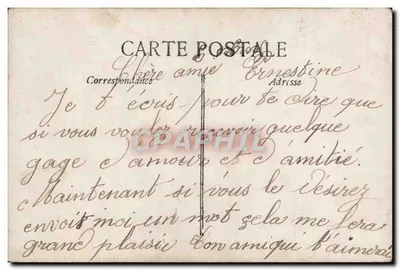 CARTE POSTALE
Correspondance Adresse
Chère amie Ernestine
Je t écris pour te dire que
si vous voulez recevoir quelque
gage d amour et d amitié.
Maintenant si vous le désirez
envois moi un mot cela me fera
grand plaisir ton ami qui t'aimera
CARTAPHIL